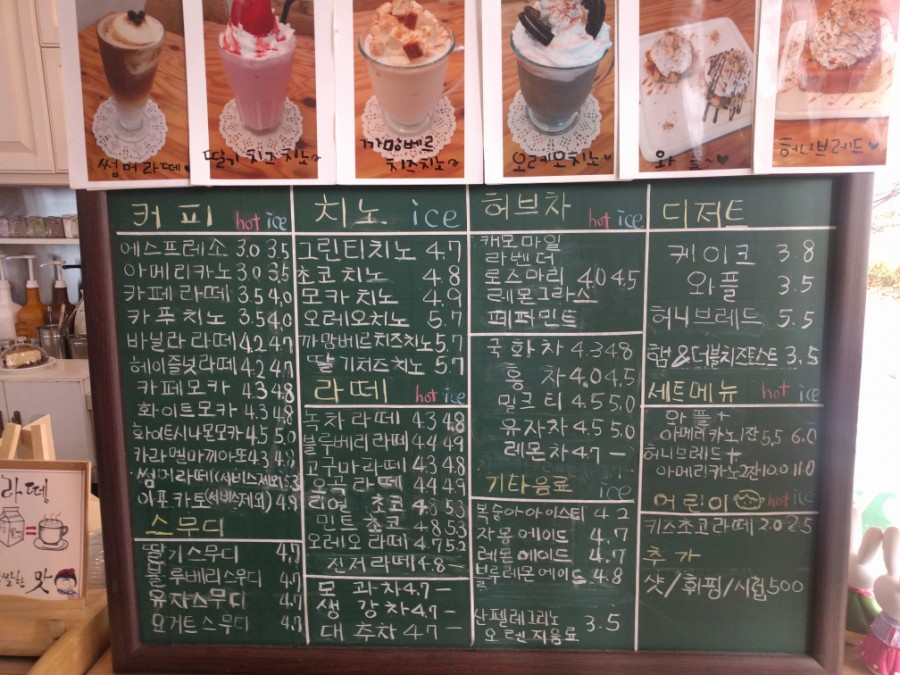 썸머라떼
딸기치즈치노
까망베르
치즈치노
오레오치노
와플~
허니브레드
커피 hot ice
에스프레소 3.0 3.5
아메리카노 3.0 3.5
카페라떼 3.5 4.0
카푸치노 3.5 4.0
바닐라라떼 4.2 4.7
헤이즐넛라떼 4.2 4.7
카페모카 4.3 4.8
화이트모카 4.3 4.8
화이트시나몬모카 4.5 5.0
카라멜마끼아또 4.3 4.8
썸머라떼(서비스제외) 5.3
아포카토(서비스제외) 4.9
스무디
딸기스무디 4.7
블루베리스무디 4.7
유자스무디 4.7
요거트스무디 4.7
치노 ice
그린티치노 4.7
초코치노 4.8
모카치노 4.9
오레오치노 5.7
까망베르치즈치노 5.7
딸기치즈치노 5.7
라떼 hot ice
녹차라떼 4.3 4.8
블루베리라떼 4.4 4.9
고구마라떼 4.3 4.8
오곡라떼 4.4 4.9
리얼초코 4.8 5.3
민트초코 4.8 5.3
오레오라떼 4.7 5.2
진저라떼 4.8 -
모과차 4.7 -
생강차 4.7 -
대추차 4.7 -
허브차 hot ice
캐모마일
라벤더
로즈마리 4.0 4.5
레몬그라스
페퍼민트
국화차 4.3 4.8
홍차 4.0 4.5
밀크티 4.5 5.0
유자차 4.5 5.0
레몬차 4.7 -
기타음료 ice
복숭아아이스티 4.2
자몽에이드 4.7
레몬에이드 4.7
블루레몬에이드 4.8
산펠레그리노 3.5
오렌지음료
디저트
케이크 3.8
와플 3.5
허니브레드 5.5
햄&더블치즈토스트 3.5
세트메뉴 hot ice
와플+
아메리카노1잔 5.5 6.0
허니브레드+
아메리카노2잔 10.0 11.0
어린이 hot ice
키즈초코라떼 2.0 2.5
추가
샷/휘핑/시럽 500
라떼
=
맛